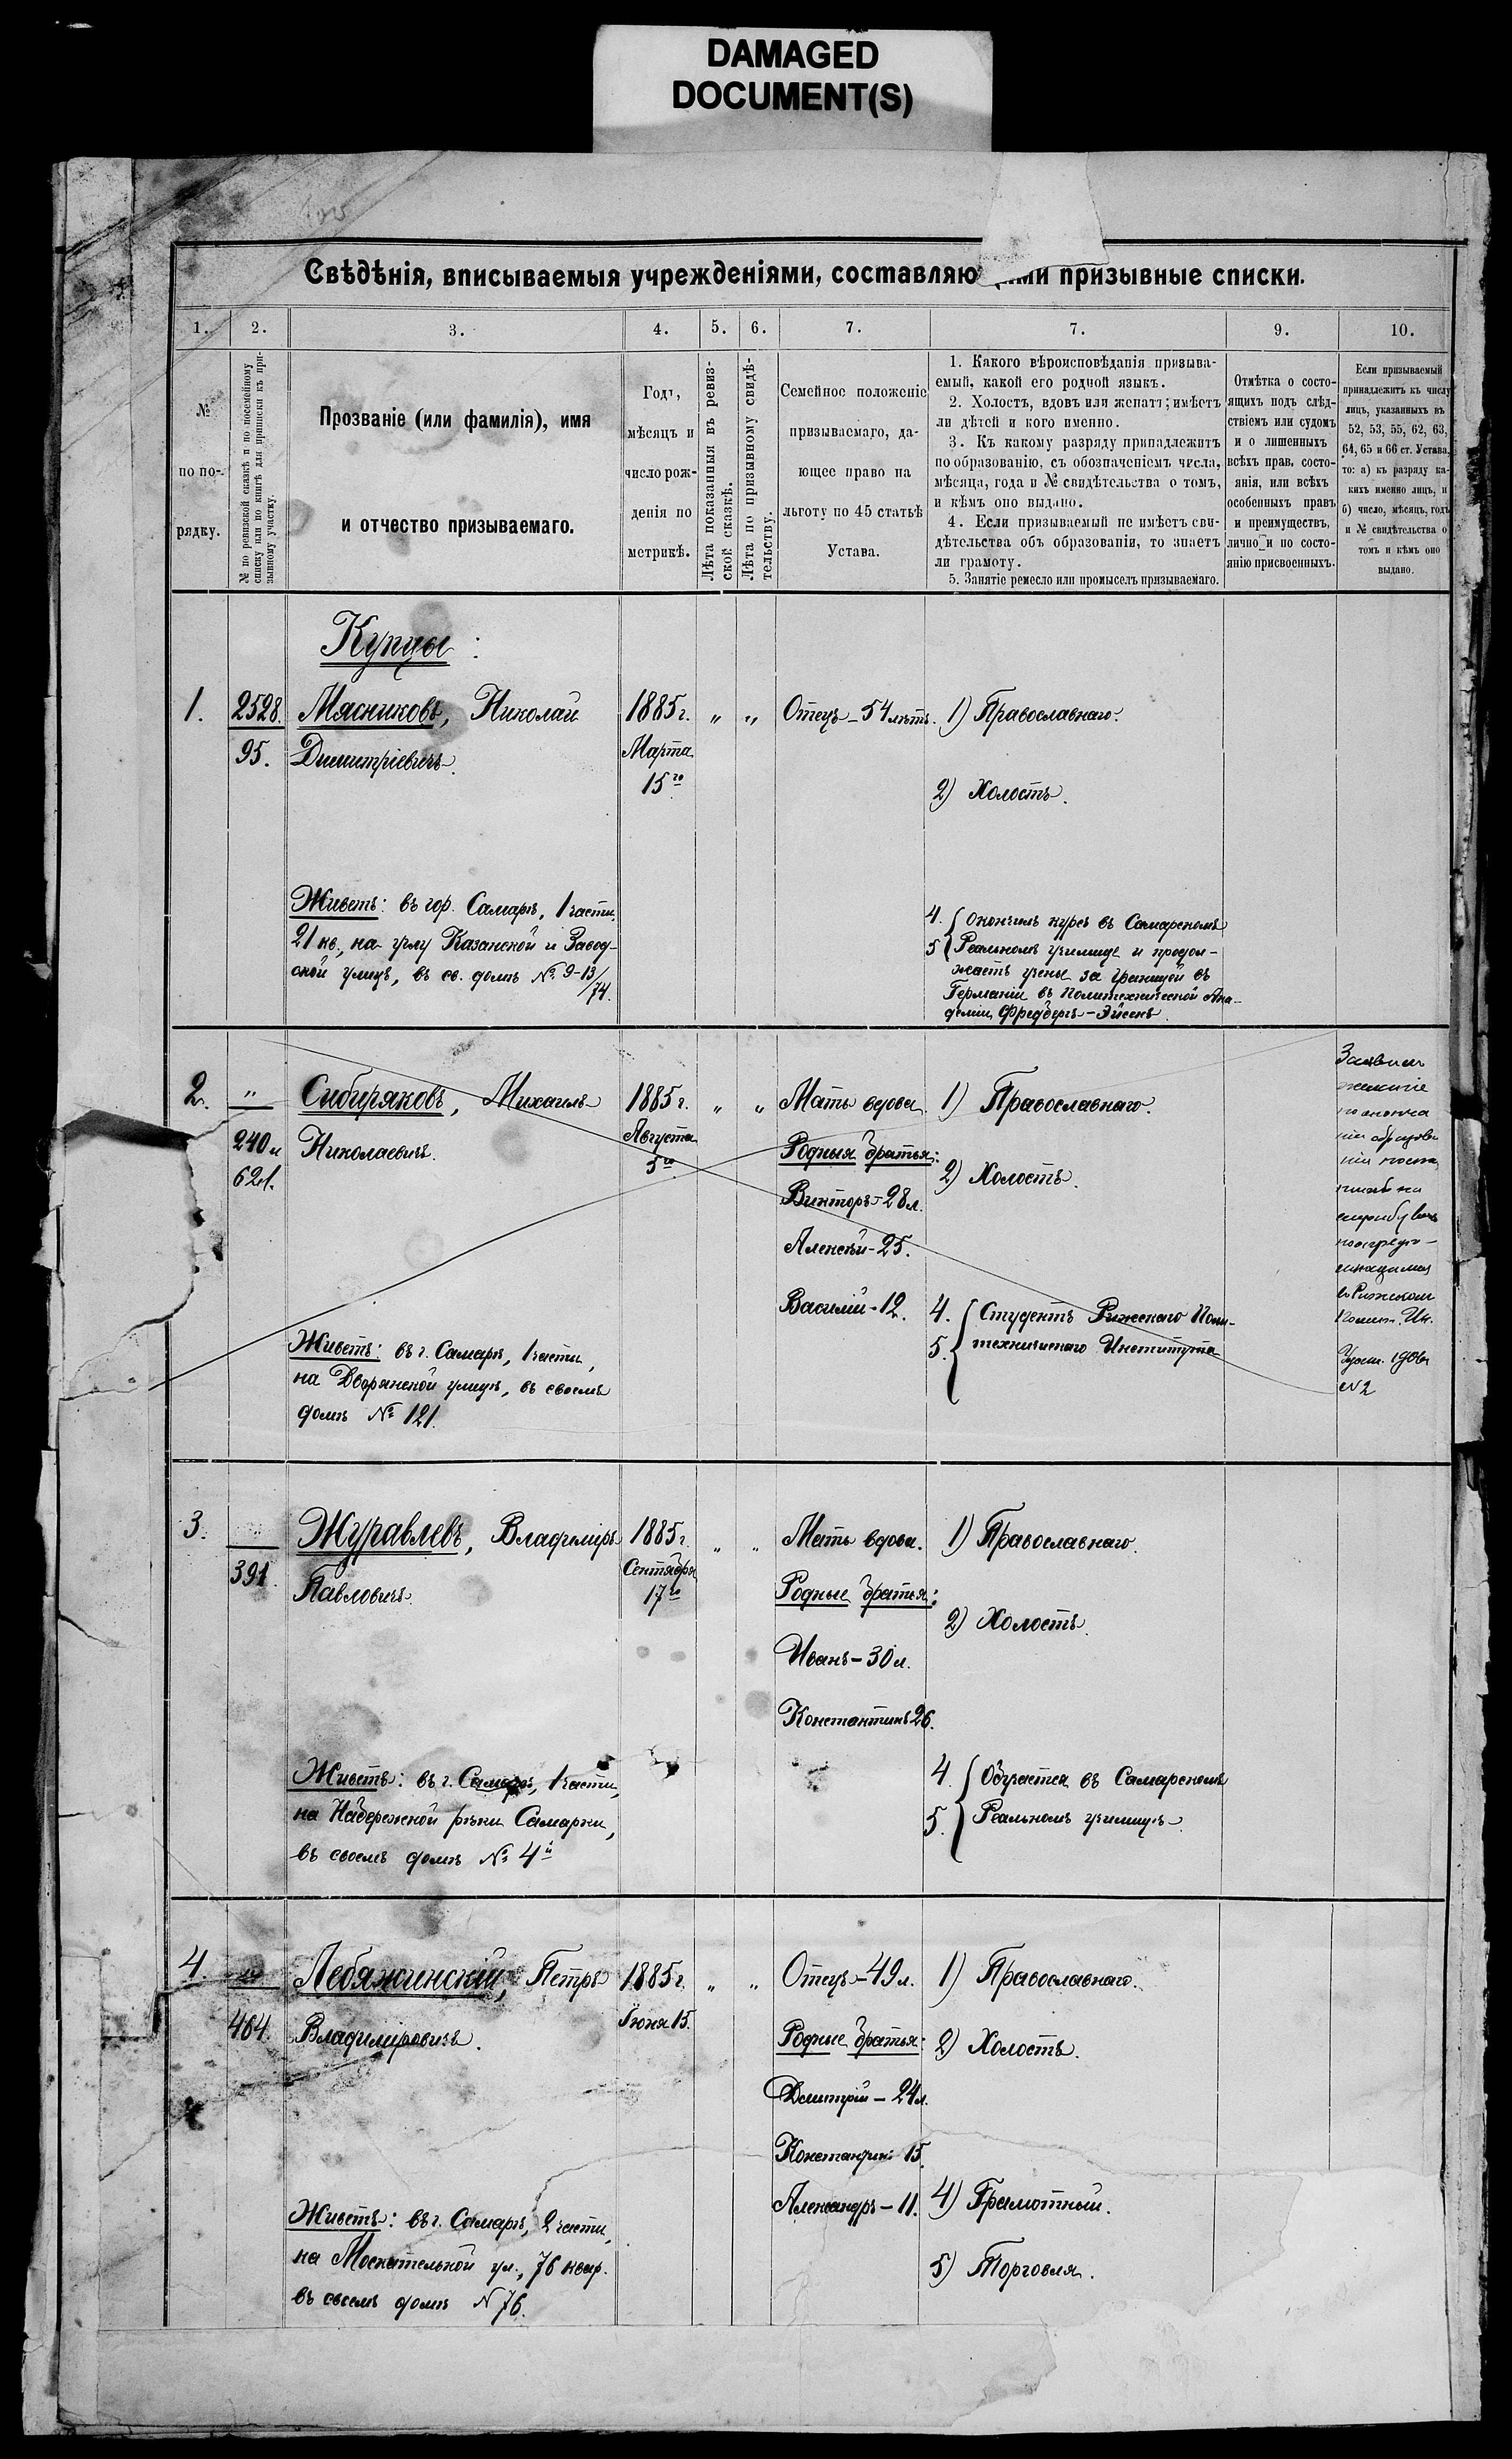 DAMAGED
DOCUMENT(S)
Свѣдѣнія, вписываемыя учрежденіями, составляю ими призывные списки.
1. 2. 3. 4. 5. 6. 7. 7. 9. 10.
№
по по-
рядку.
№ по ревизской сказкѣ и по посемейному
списку или по книгѣ для приписки къ при-
зывному участку.
Прозваніе (или фамилія), имя
и отчество призываемаго.
Годъ,
мѣсяцъ и
число рож-
денія по
метрикѣ.
Лѣта показанныя въ ревиз-
ской сказкѣ.
Лѣта по призывному свидѣ-
тельству.
Семейное положеніе
призываемаго, да-
ющее право на
льготу по 45 статьѣ
Устава.
1. Какого вѣроисповѣданія призыва-
емый, какой его родной языкъ.
2. Холостъ, вдовъ или женатъ; имѣетъ
ли дѣтей и кого именно.
3. Къ какому разряду принадлежитъ
по образованію, съ обозначеніемъ числа,
мѣсяца, года и № свидѣтельства о томъ,
и кѣмъ оно выдано.
4. Если призываемый не имѣетъ сви-
дѣтельства объ образованіи, то знаетъ
ли грамоту.
5. Занятіе ремесло или промыселъ призываемаго.
Отмѣтка о состо-
ящихъ подъ слѣд-
ствіемъ или судомъ
и о лишенныхъ
всѣхъ прав. состо-
янія, или всѣхъ
особенныхъ правъ
и преимуществъ,
лично и по состо-
янію присвоенныхъ.
Если призываемый
принадлежитъ къ числу
лицъ, указанныхъ въ
52, 53, 55, 62, 63,
64, 65 и 66 ст. Устава,
то: а) къ разряду ка-
кихъ именно лицъ, и
б) число, мѣсяцъ, годъ
и № свидѣтельства о
томъ и кѣмъ оно
выдано.
Купцы:
1. 2528. Мясниковъ, Николай 1885 г. " " Отецъ - 54 лѣтъ. 1) Православнаго.
95. Димитріевичъ. Марта
15го
2) Холостъ.
Живетъ: въ гор. Самарѣ, 1 части,
21 кв., на углу Казанской и Завод-
ской улицъ, въ св. домѣ № 9-13/74.
4. Окончилъ курсъ въ Самарскомъ
5 Реальномъ училищѣ и продол-
жаетъ ученье за границей въ
Германіи въ Политехнической Ака-
деміи, Фредбергъ-
2. " Сибиряковъ, Михаилъ 1885 г. " " Мать вдова. 1) Православнаго.
240 и Николаевичъ. Августа Родныя братья:
62 л. 5го
2) Холостъ.
Викторъ - 28 л.
Алексѣй - 25.
Василій - 12.
Живетъ: въ г. Самарѣ, 1 части,
на Дворянской улицѣ, въ своемъ
домѣ № 121.
4. Студентъ Рижскаго Поли-
5. техническаго Института
Заявилъ
желаніе
в Рижском
Полит. Ин.
№ 2
3. " Журавлевъ, Владиміръ 1885 г. " " Мать вдова. 1) Православнаго.
391. Павловичъ. Сентября Родные братья:
17го
2) Холостъ.
Иванъ - 30 л.
Константинъ 26.
Живетъ: въ г. Самарѣ, 1 части,
на Набережной рѣки Самарки,
въ своемъ домѣ № 4й
4. Обучается въ Самарскомъ
5. Реальномъ училищѣ.
4. " Лебяжинскій, Петръ 1885 г. " " Отецъ - 49 л. 1) Православнаго.
464. Владиміровичъ. Іюня 15. Родные братья: 2) Холостъ.
Дмитрій - 24 л.
Константинъ 15.
Александръ - 11.
4) Грамотный.
Живетъ: въ г. Самарѣ, 2 части,
на Москательной ул., 76 квар.
въ своемъ домѣ № 76.
5) Торговля.